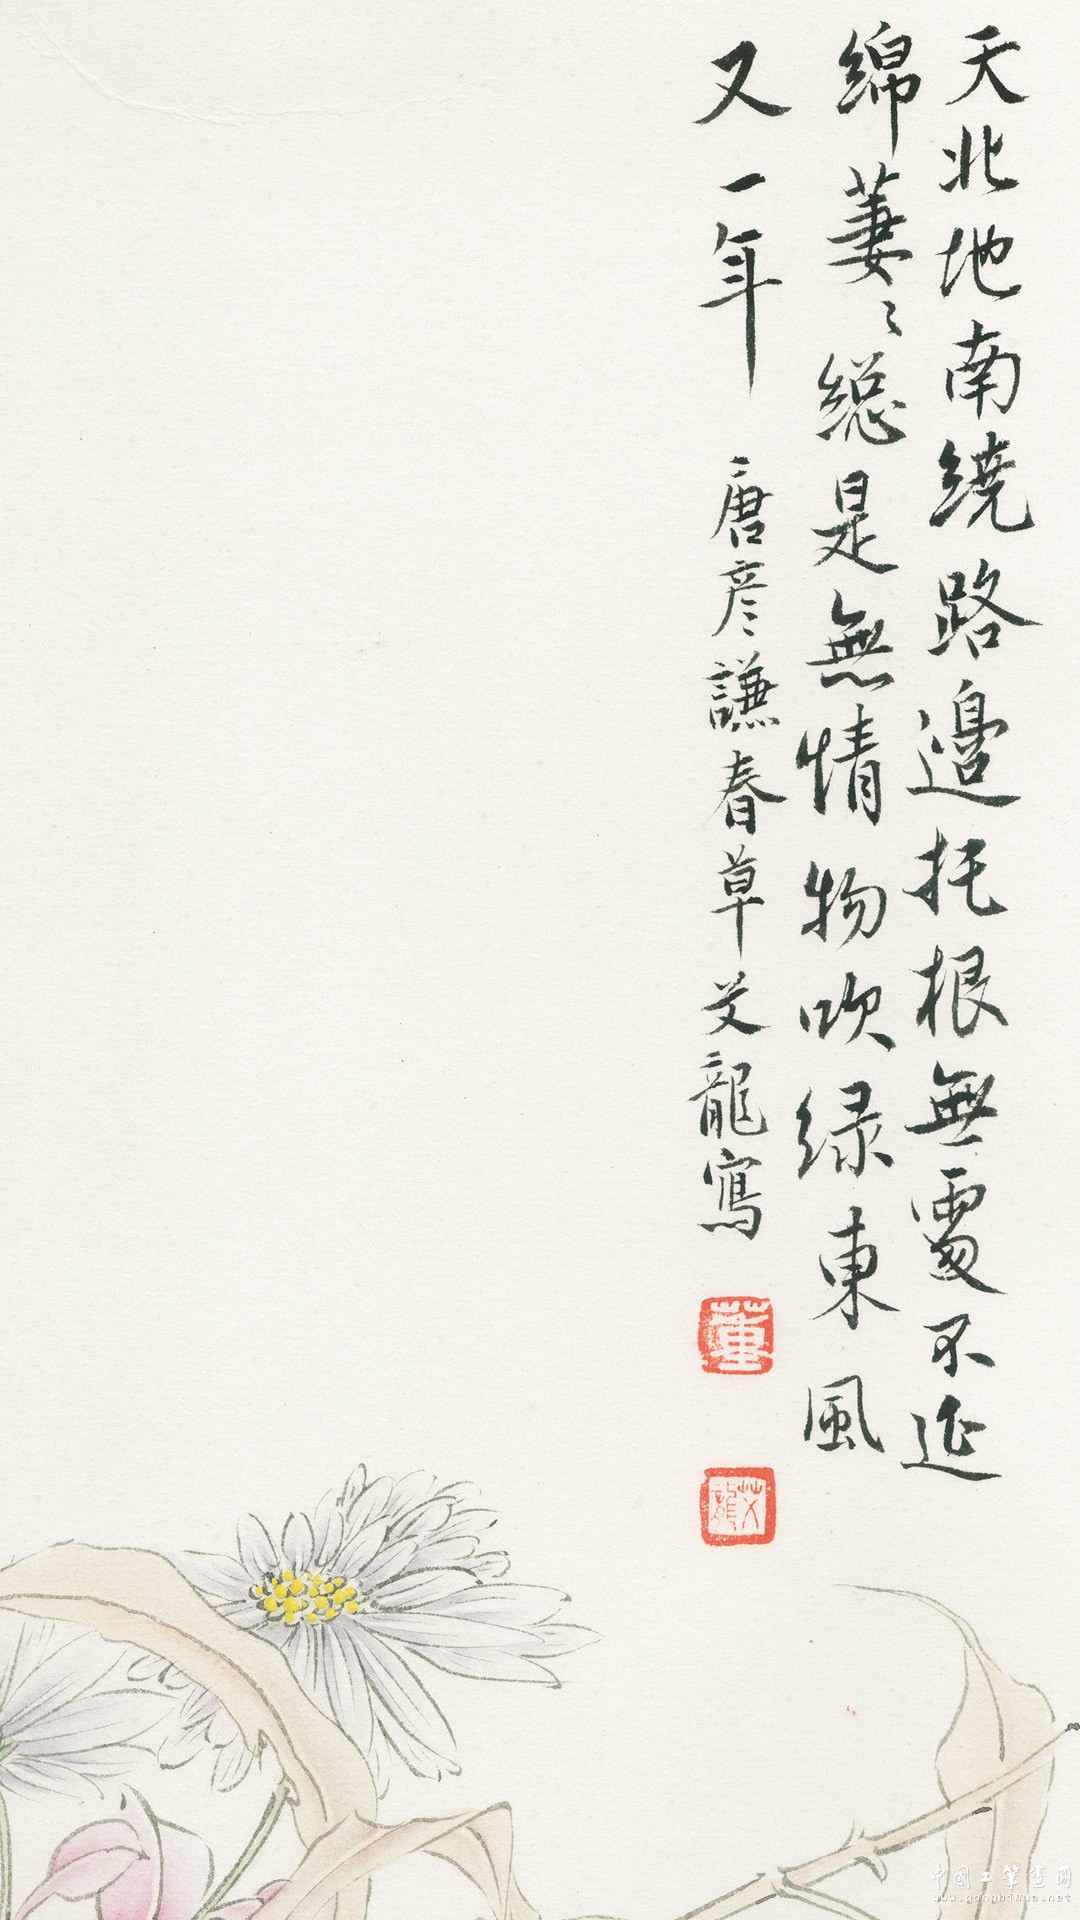 天北地南繞路邊托根無處不延
綿萋〻總是無情物吹绿東風
又一年 唐彦謙春草艾龍寫
董
艾龍
中國工筆畫網
www.gongbihua.net